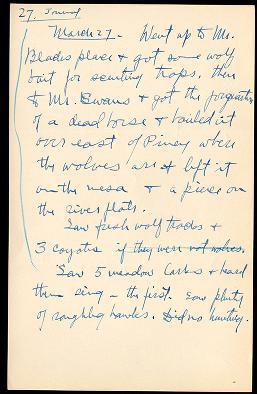 27. Journal
March 27 - Went up to Mr.
Blades place & got some wolf
bait for scenting traps. then
to Mr. Swans & got the forequarters
of a dead horse & hauled it
over east of Piney where
the wolves are & left it
on the mesa & a piece on
the river flats.
Saw fresh wolf tracks &
3 coyotes if they were not wolves.
Saw 5 meadow larks & heard
them sing - the first. Saw plenty
of roughleg hawks. Did no hunting.